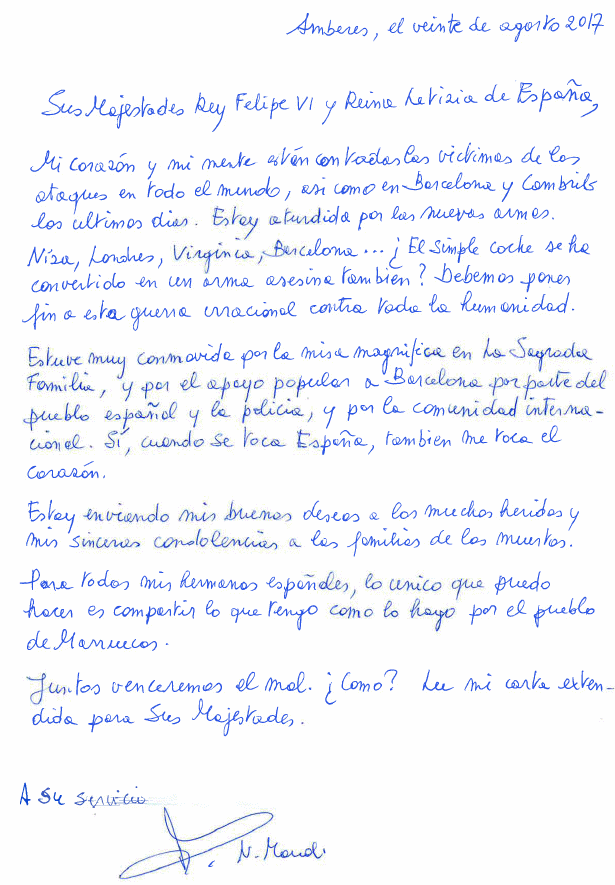 Amberes, el veinte de agosto 2017
Sus Majestades Rey Felipe VI y Reina Letizia de España,
Mi corazón y mi mente están con todas las victimas de los
ataques en todo el mundo, asi como en Barcelona y Cambrils
los ultimos dias. Estoy aturdida por las nuevas armas.
Niza, Londres, Virginia, Barcelona... ¿El simple coche se ha
convertido en un arma asesina también? Debemos poner
fin a esta guerra irracional contra toda la humanidad.
Estuve muy conmovida por la misa magnifica en La Sagrada
Familia, y por el apoyo popular a Barcelona por parte del
pueblo español y la policia, y por la comunidad interna-
cional. Sí, cuando se toca España, tambien me toca el
corazón.
Estoy enviando mis buenos deseos a los muchos heridos y
mis sinceras condolencias a las familias de los muertos.
Para todos mis hermanos españoles, lo unico que puedo
hacer es compartir lo que tengo como lo hago por el pueblo
de Marruecos.
Juntos venceremos el mal. ¿Como? Lee mi carta exten-
dida para Sus Majestades.
A su servicio